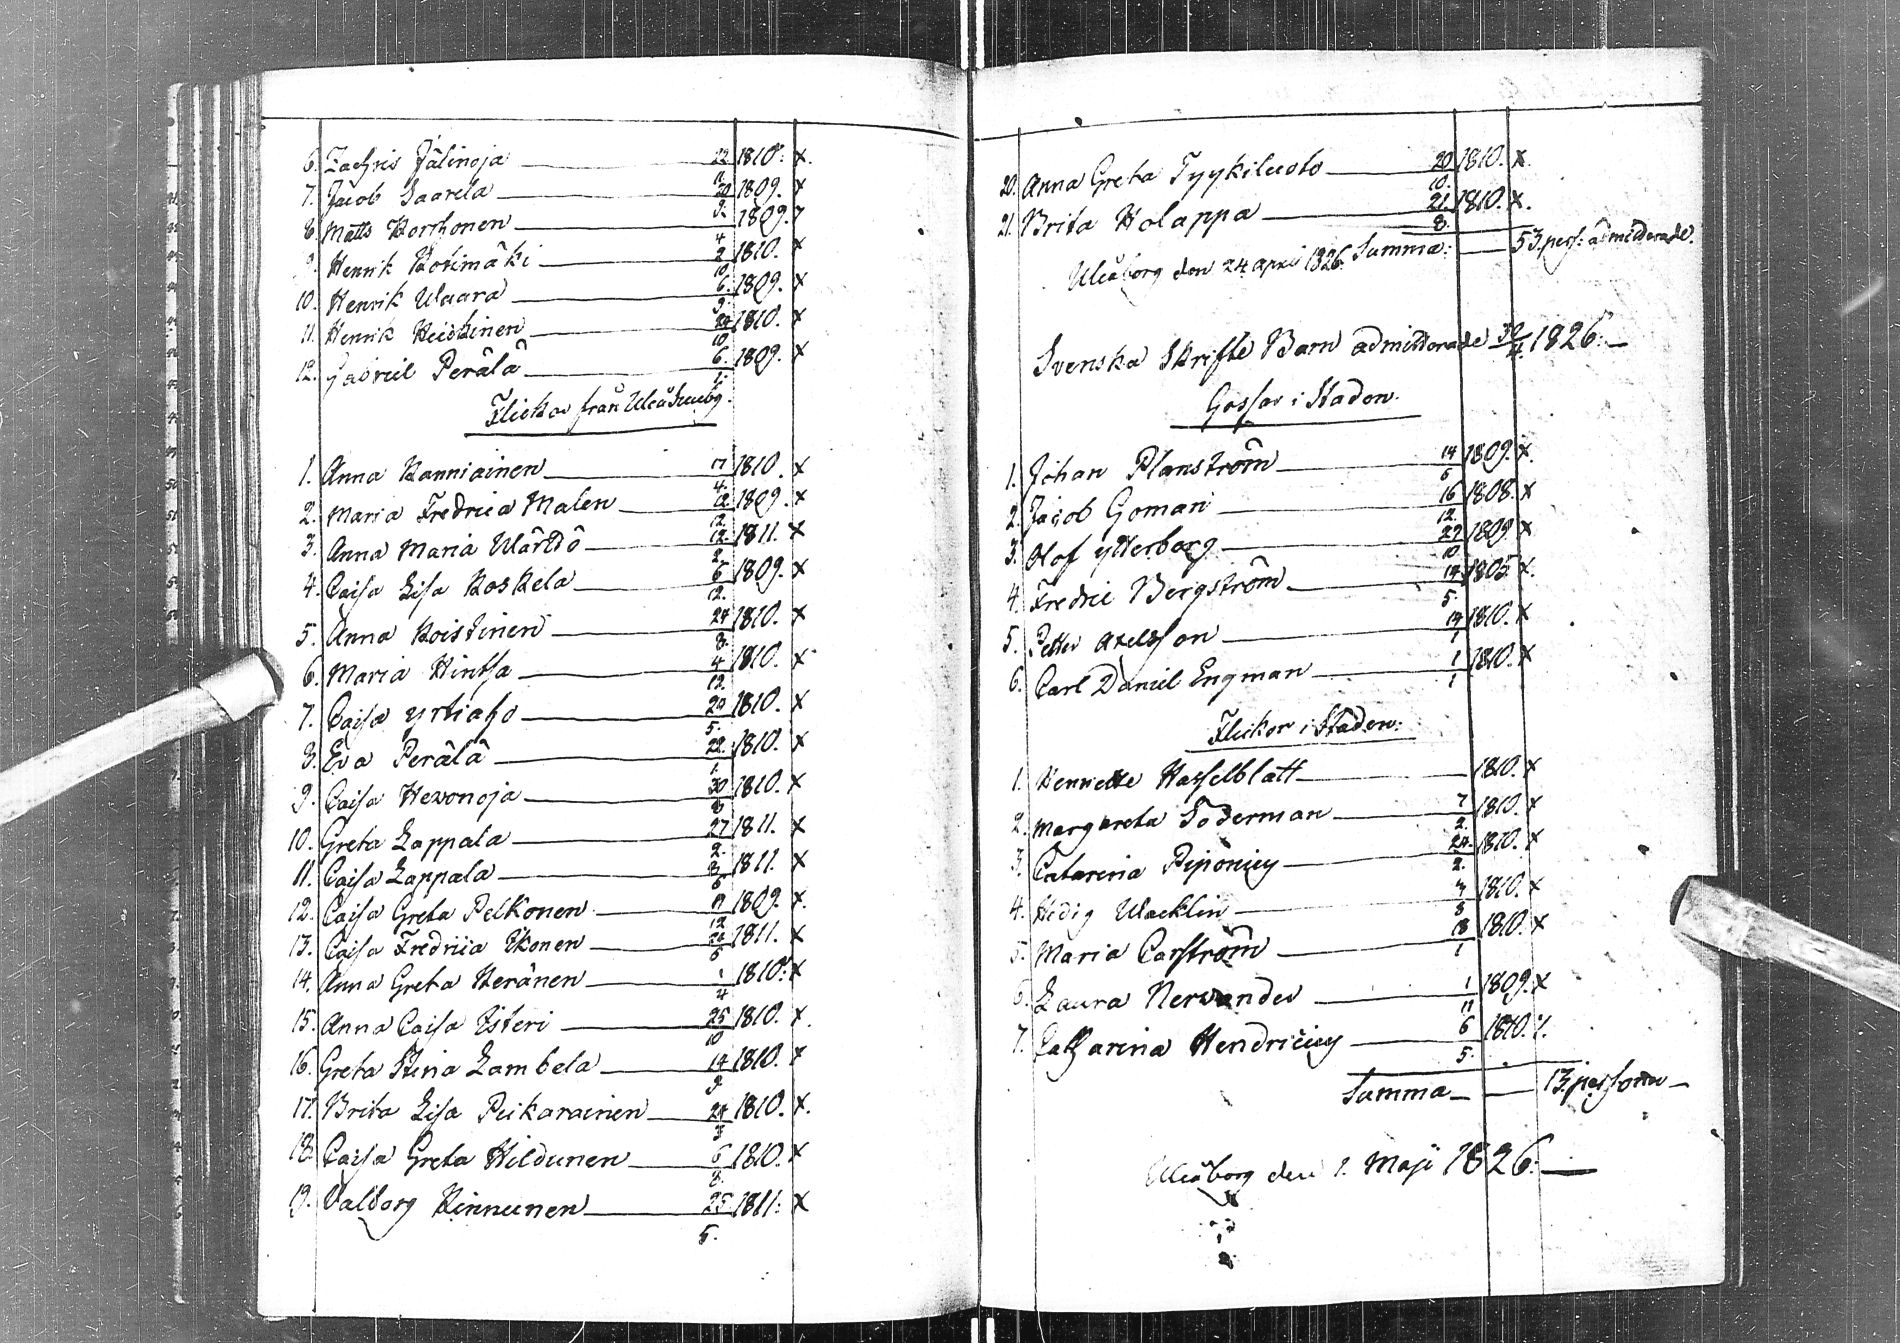 6. Zachris Jälinoja 22/11 1810. x.
7. Jacob Saarela 20/9. 1809. x
8. Matts Korhonen 1809. 7
9. Henrik Kotimäki 4/2 1810. x
10. Henrik Waara 6./9. 1809. x
11. Henrik Heickinen 24/10 1810. x
12. Gabriel Perälä 6. 1809. x
Flickor från Uleåsuubg.
1. Anna Kanniainen 17/4. 1810. x
2. Maria Fredrica Malen 12/12. 1809. x
3. Anna Maria Wärttö 12./2. 1811. x
4. Caisa Lisa Koskela 6/12. 1809. x
5. Anna Koistinen 24/8. 1810. x
6. Maria Hintsa 4/12. 1810. x
7. Caisa Yrtiaho 29/5. 1810. x
8. Eva Perälä 22./1. 1810. x
9. Caisa Hevonoja 30/8 1810. x
10. Greta Lappala 27/2. 1811. x
11. Caisa Lappala 1811. x
12. Caisa Greta Pelkonen 1809. x.
13. Caisa Fredrica Ikonen 1811. x
14. Anna Greta Keränen 1/4 1810. x
15. Anna Caisa Isteri 25/10 1810. x.
16. Greta Stina Lambela 14/9. 1810. x
17. Brita Lisa Pukarainen 24/3 1810. x.
18. Caisa Greta Hildunen 6 1810. x
19. Valborg Kinnunen 25/5. 1811. x
20. Anna Greta Tyykiluoto 20/10. 1810. x.
21. Brita Holappa 21./8. 1810. x.
Summa: 53. pers: admitterade.
Uleåborg den 24 april 1826.
Svenska Skrifte Barn admitterade 30/4 1826.
Gossar i Staden.
1. Johan Planström 14/6 1809. x.
2. Jacob Goman 16/12. 1808. x
3. Olof Ytterborg 27/10 1809. x
4. Fredric Bergström 19/5. 1805. x.
5. Petter Axelsson 19/1 1810. x
6. Carl Daniel Engman 1/1 1810. x
Flickor i Staden.
1. Henriette Hasselblatt 1810. x
2. Margareta Söderman 7/2. 1810. x
3. Catarina Piponius 24./2. 1810. x
4. Hedvig Wacklin 1810. x
5. Maria Carström 18/1 1810. x
6. Laura Nervander 1/11 1809. x
7. Catharina Hendricius 6/5. 1810. x.
Summa 13. personer
Uleåborg den 1. Maji 1826.